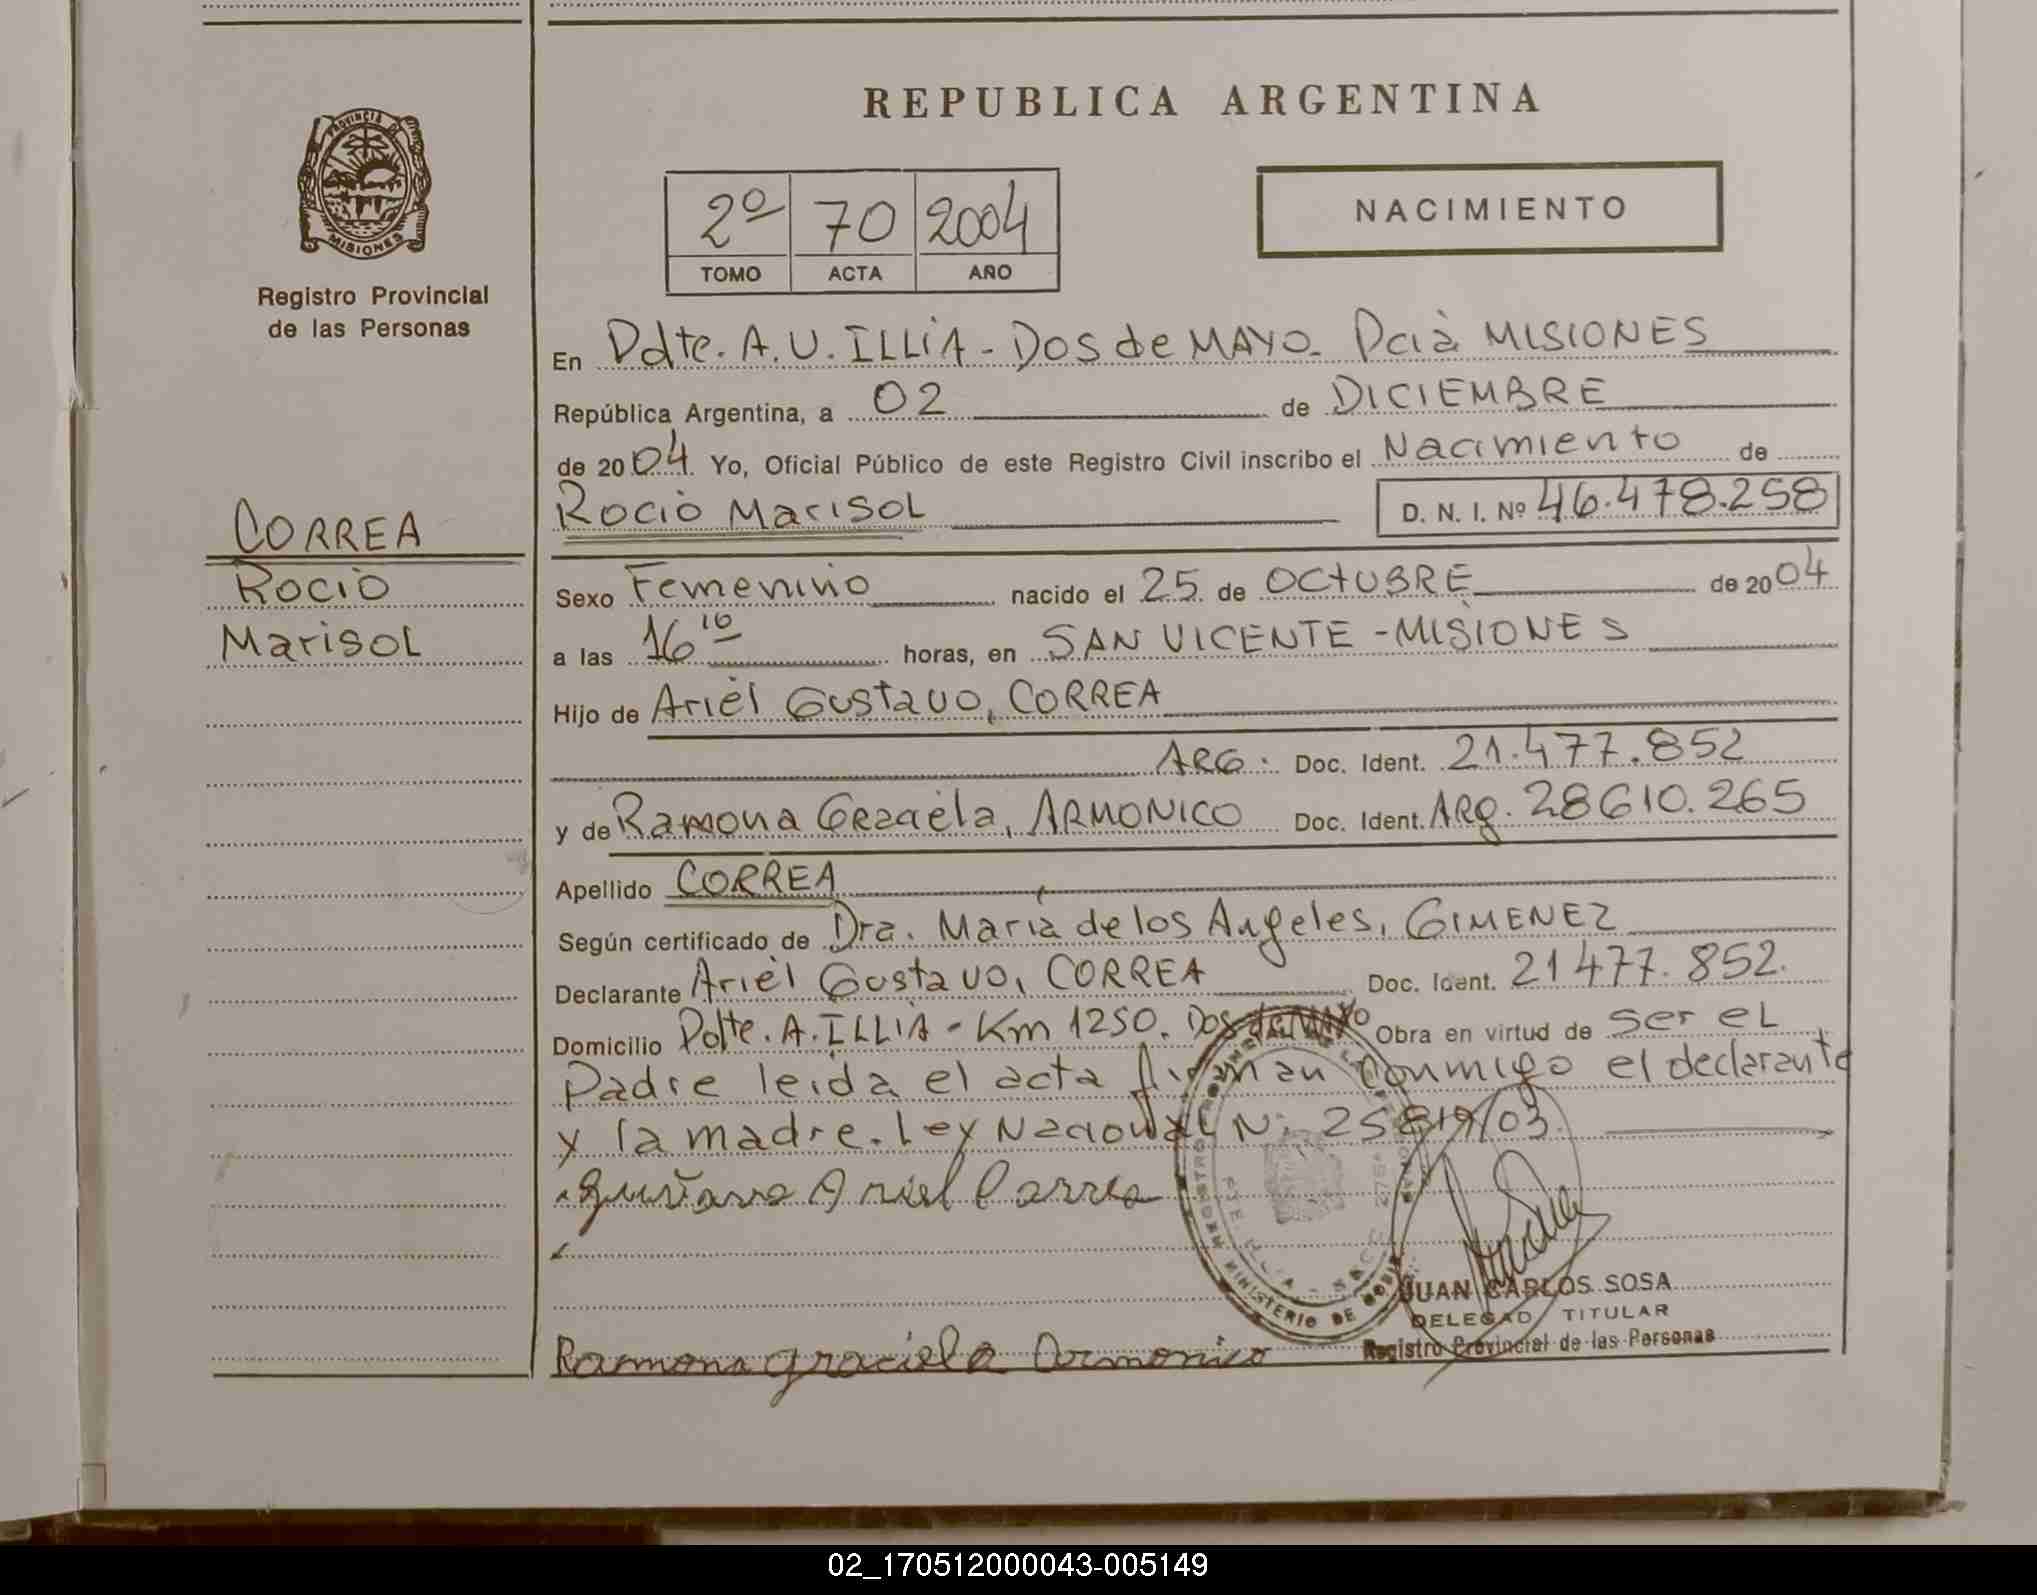 REPUBLICA ARGENTINA
PROVINCIA DE
MISIONES
Registro Provincial
de las Personas
2º 70 2004
TOMO ACTA AÑO
NACIMIENTO
En Pdte. A.U. ILLIA - Dos de MAYO. Pcia MISIONES
República Argentina, a 02 de DICIEMBRE
de 2004. Yo, Oficial Público de este Registro Civil inscribo el Nacimiento de
Rocio Marisol D. N. I. Nº 46.478.258
CORREA
Rocio
Marisol
Sexo Femenino nacido el 25 de OCTUBRE de 2004
a las 16 10 horas, en SAN VICENTE - MISIONES
Hijo de Ariel Gustavo, CORREA
ARG. Doc. Ident. 21.477.852
y de Ramona Graciela, ARMONICO Doc. Ident. ARg. 28610.265
Apellido CORREA
Según certificado de Dra. Maria de los Angeles, GIMENEZ
Declarante Ariel Gustavo, CORREA Doc. Ident. 21477.852.
Domicilio Pdte. A. ILLIA - Km 1250. Dos de MAYO Obra en virtud de ser el
Padre leida el acta firman conmigo el declarante
y la madre. Ley Nacional N: 25819/03.
Gustavo Ariel Correa
JUAN CARLOS SOSA
DELEGAD TITULAR
Registro Provincial de las Personas
Ramona graciela Armonico
02_170512000043-005149